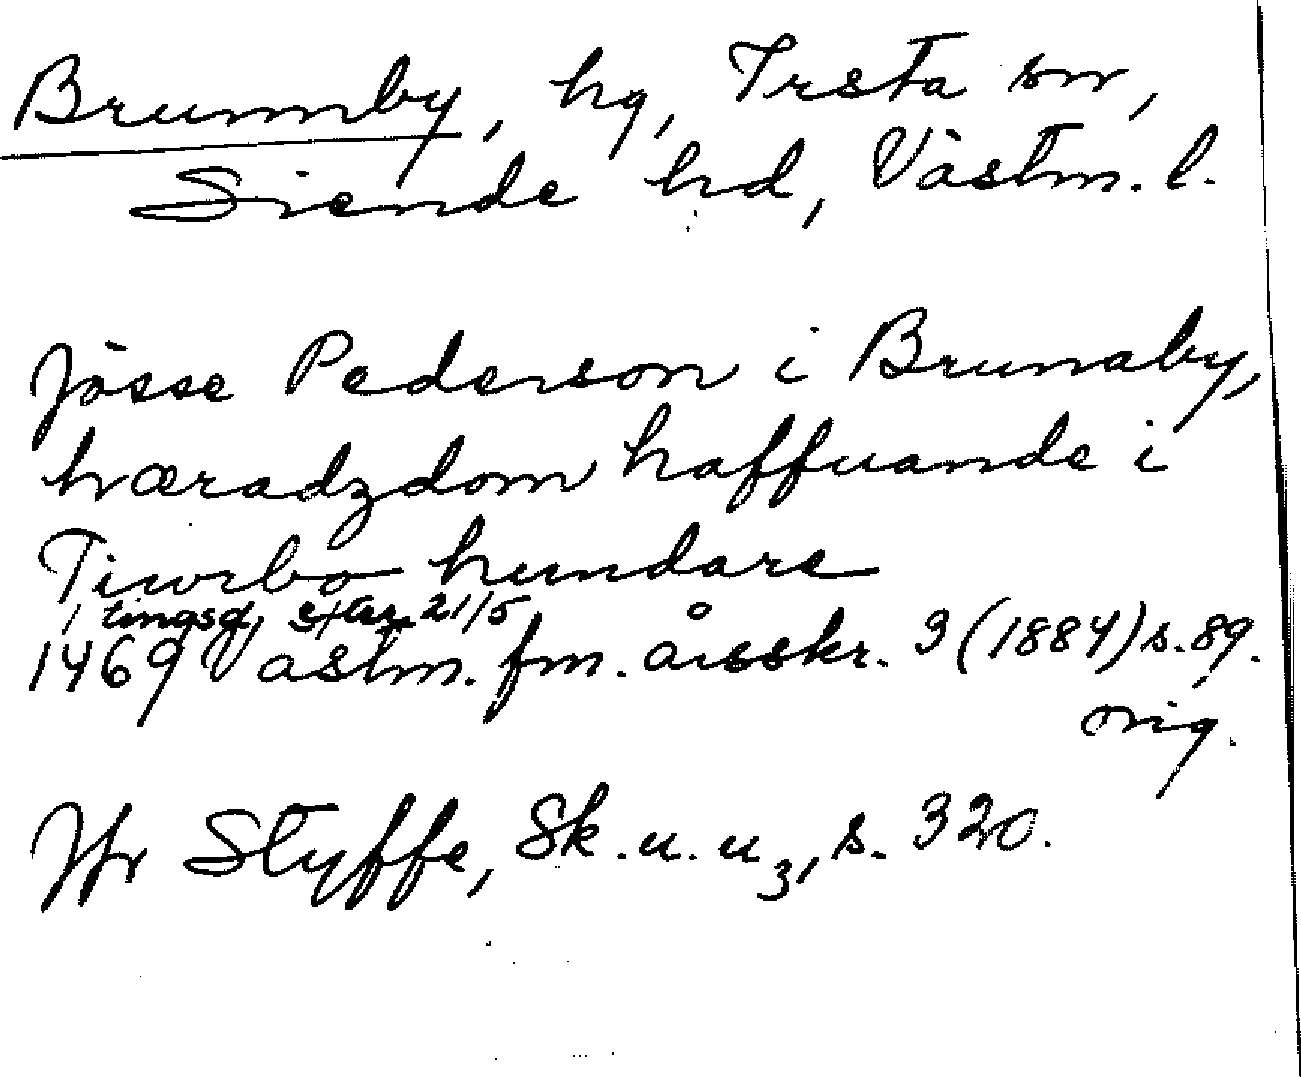 Brunnby, hg, Irsta sn,
Siende hd, Västm. l.
Jösse Pederson i Brunaby,
hæradzdom haffuande i
Tiwrbo hundare
tingsd. efter 21/5
1469 Västm. fm. årsskr. 3 (1884) s. 89.
orig.
Jfr Styffe, Sk. u. u3, s. 320.